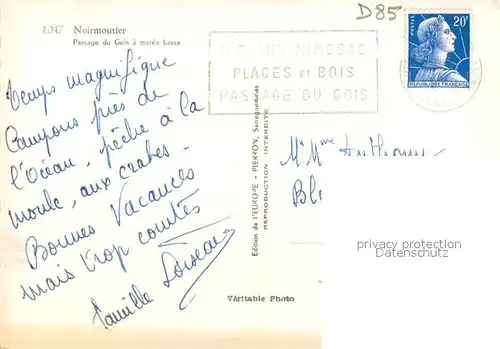 D85
4047 Noirmoutier
Passage du Gois à marée basse
POSTES
20F
REPUBLIQUE FRANÇAISE
ILE AUX MIMOSAS
PLAGES et BOIS
PASSAGE DU GOIS
Temps magnifique
Campons près de
l'Océan, pêche à la
moule, aux crabes.
Bonnes Vacances
mais trop courtes
Famille Loiseau
Édition de l'EUROPE - PIERRON, Sarreguemines
REPRODUCTION INTERDITE
Mr Mme Anthony
Bl
privacy protection
Datenschutz
Véritable Photo